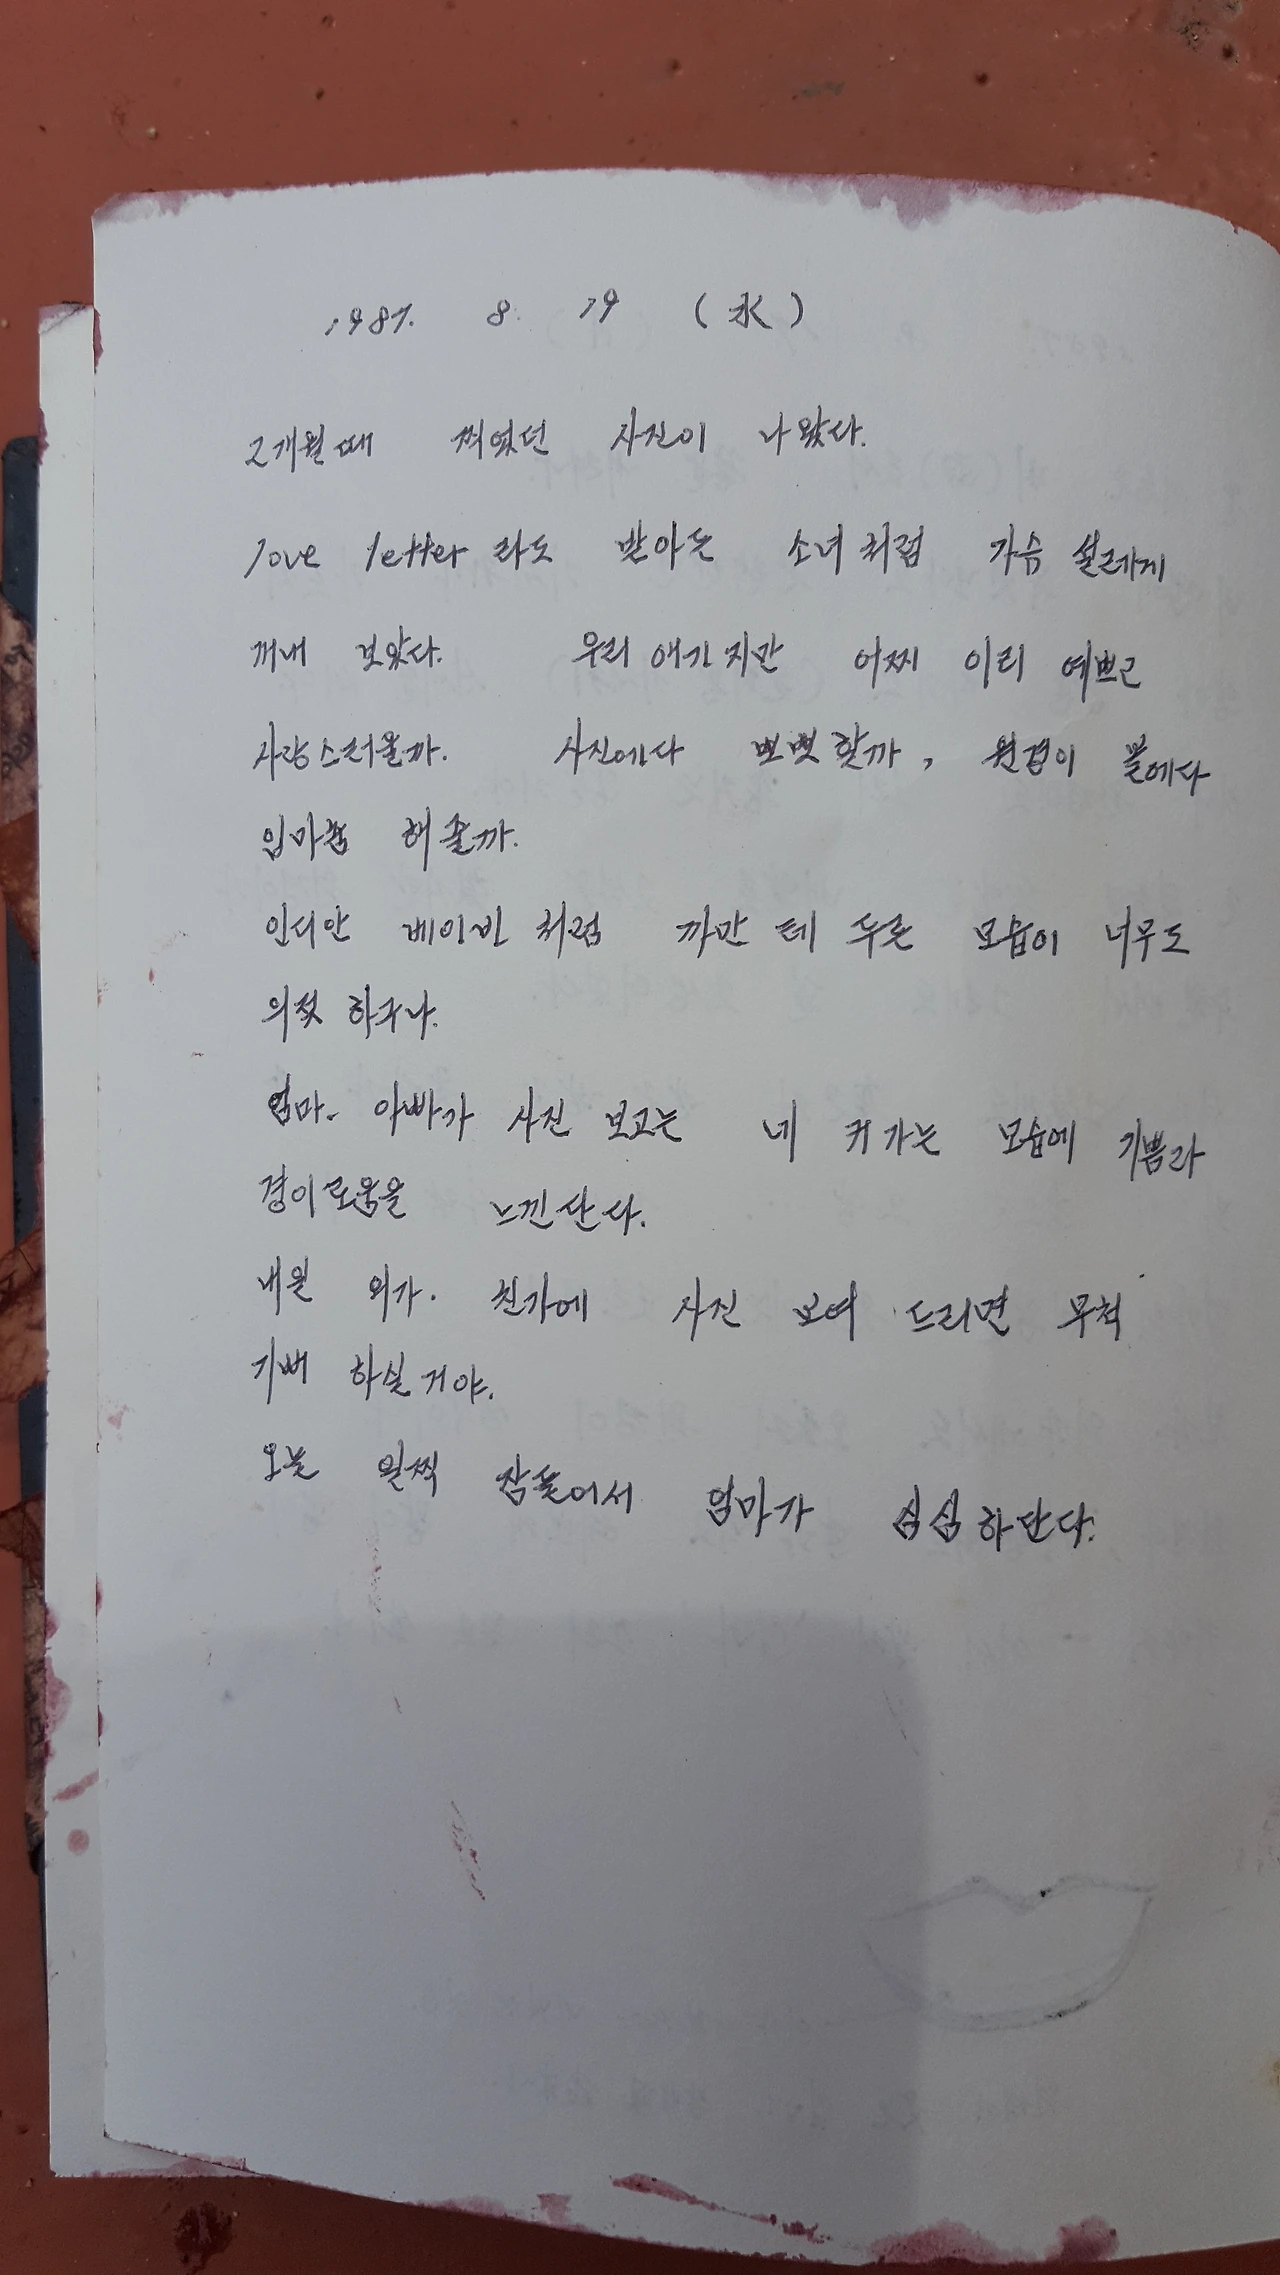 1987. 8. 19 (水)
2개월때 찍었던 사진이 나왔다.
love letter 라도 받아든 소녀처럼 가슴 설레게
꺼내 보았다. 우리 애기지만 어찌 이리 예쁘고
사랑스러울까. 사진에다 뽀뽀할까, 원경이 볼에다
입마춤 해줄까.
인디안 베이비 처럼 까만 테 두른 모습이 너무도
의젓 하구나.
엄마. 아빠가 사진 보고는 네 커가는 모습에 기쁨과
경이로움을 느낀단다.
내일 외가. 친가에 사진 보여 드리면 무척
기뻐 하실거야.
오늘 일찍 잠들어서 엄마가 심심하단다.